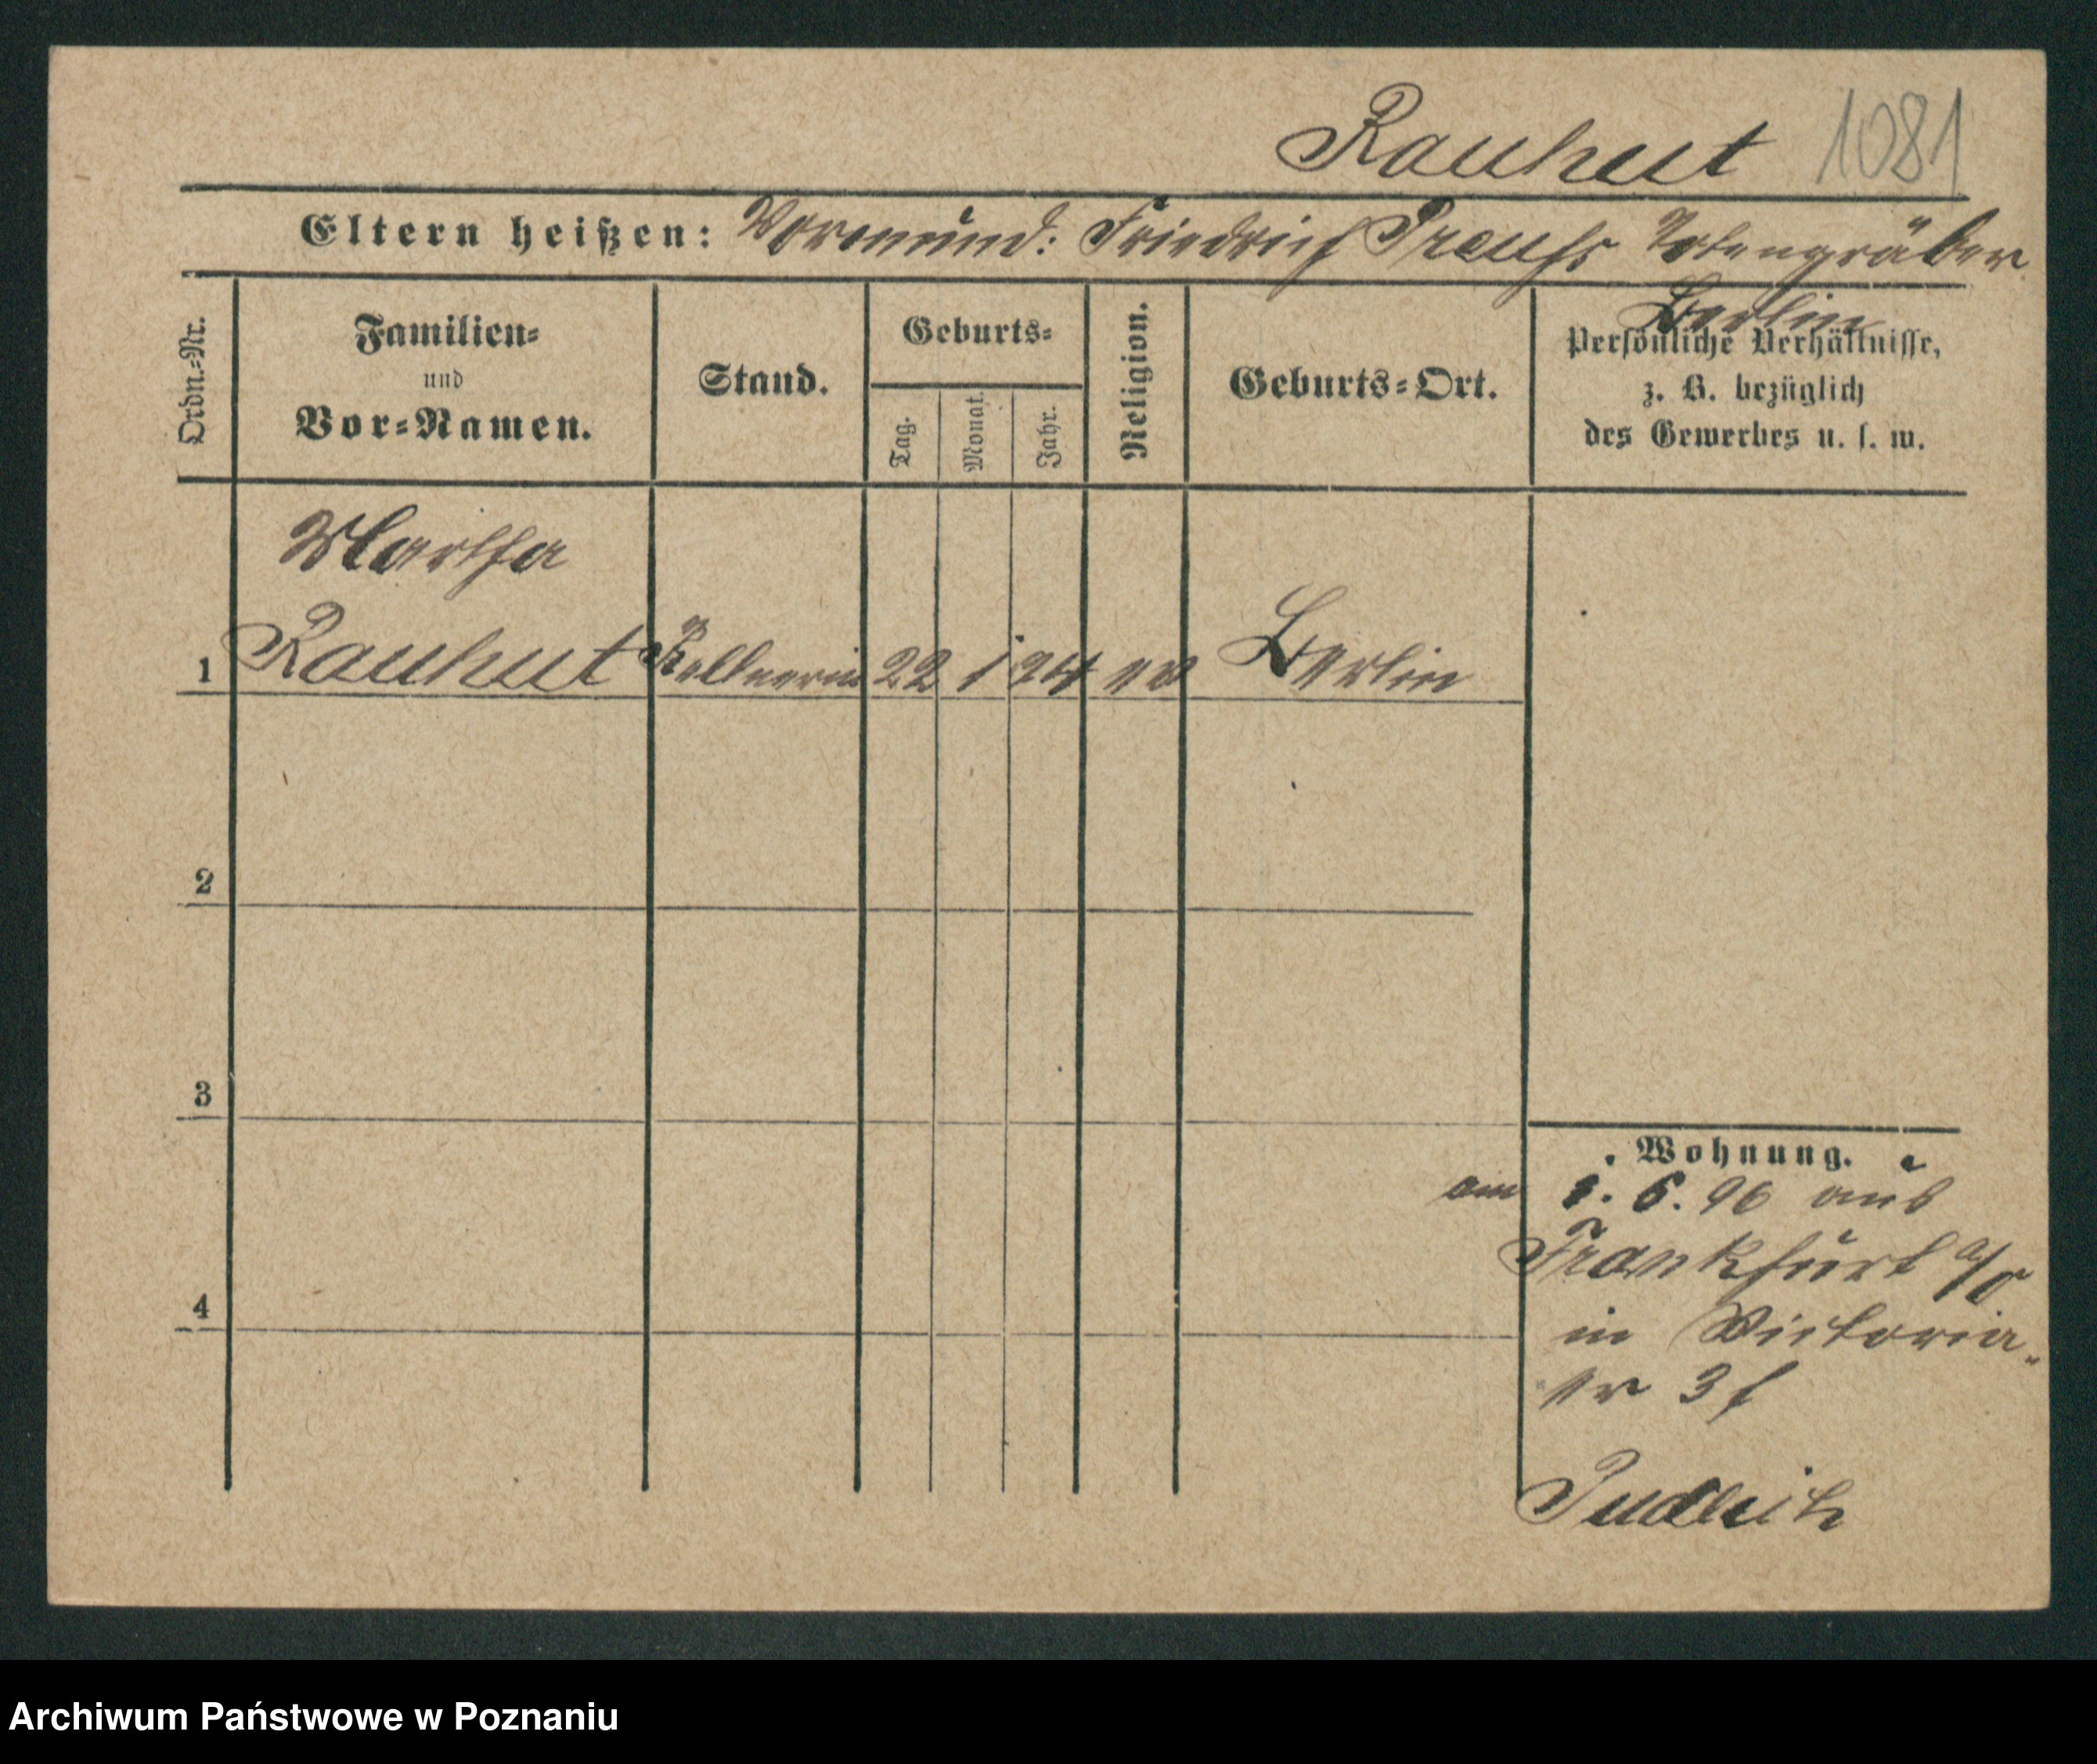 Rauhut 1081
Eltern heißen: Vormund: Friedrich Preuss Totengräber
Berlin
Ordn.=Nr.
Familien=
und
Vor=Namen.
Stand.
Geburts=
Tag.
Monat.
Jahr.
Religion.
Geburts=Ort.
Persönliche Verhältnisse,
z. B. bezüglich
des Gewerbes u. s. w.
Martha
1 Rauhut Kellnerin 22 1 74 ev Berlin
2
3
4
Wohnung.
am 1. 6. 96 aus
Frankfurt a/O
in Victoria-
str 3 f
Archiwum Państwowe w Poznaniu